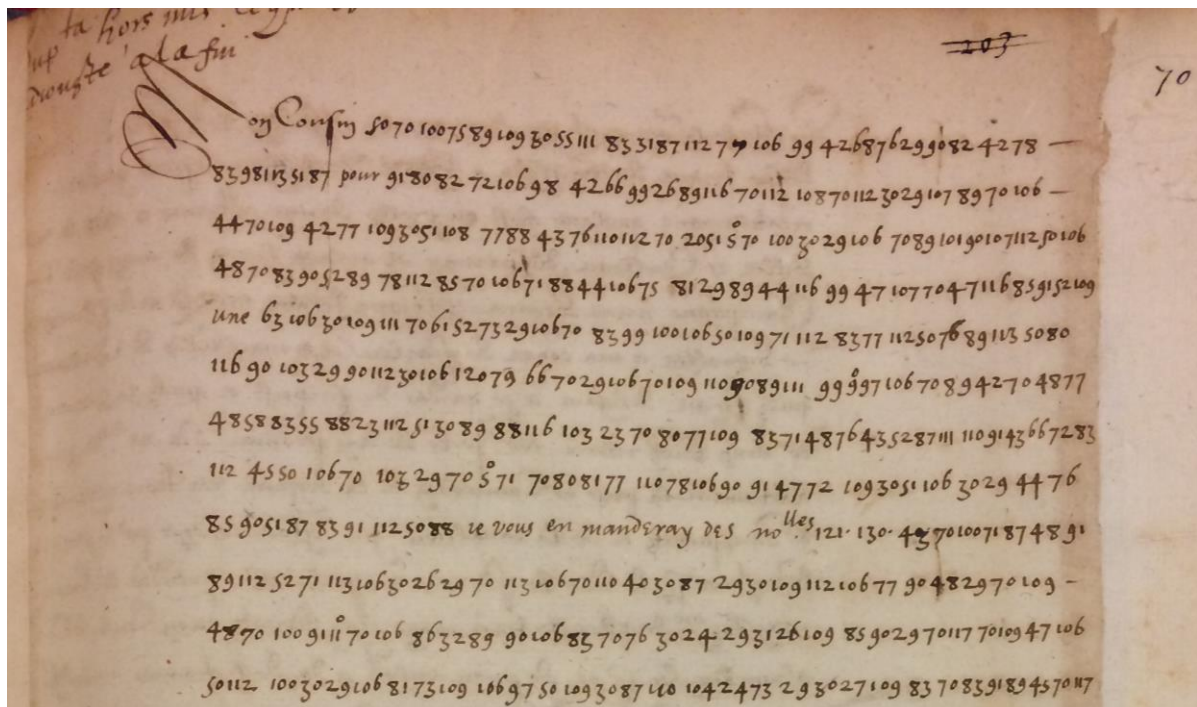 ta hors mis
a la fin
203
70
Mon Cousin 5070 1007589109305511 833187112 77 106 99 42687629908242 78 —
83981135187 pour 9180827210698 42669926891167011210870112302910789 70106 —
4470109 4277 1093051108 7788 437611011270 2051 5̊70 1003029106 708910190107112 50106
4870839052897811285701067188 4410675 8129894411699471077047116859152109
une 63106301091117061527329106708399100106501097111283771125076891135080
11690103299011230106120796670291067010911090891119999̊7106708942704877
485883558823112513089881161032370807710983714876435287111110914366 7283
1124550 10670 10329705̊71 7080817711078106909147721093051106302944 76
859051878391 1125088 ie vous en manderay des no.lles 121· 130· 43701007187489 1
89112527111310630262970113106701104030872930109112106779048297 0109 —
4870 100911̊1170106863289 901068370763024293126109 85902970117 7010947106
50112 1003029106817310910697501093087110104247329302710983708391894570117